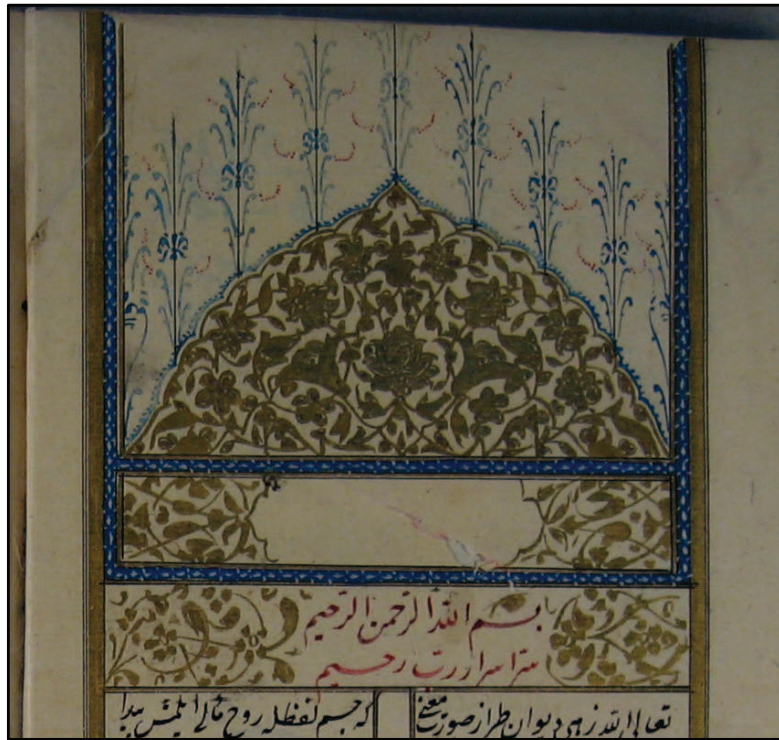 بسم الله الرحمن الرحیم
سر اسرار رب رحیم
تعالی الله زهی دیوان طراز صورت معنی که جسم لفظله روح مآلی ایلمش پیدا